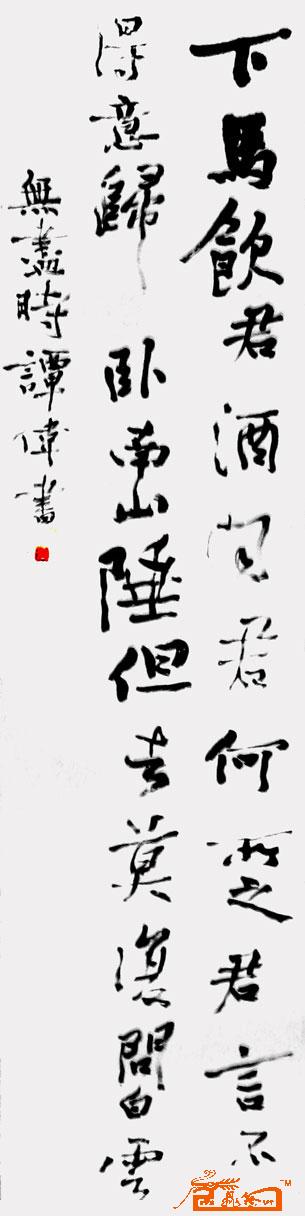 下馬飲君酒問君何所之君言不
得意歸卧南山陲但去莫復問白雲
無盡時譚偉書
TM